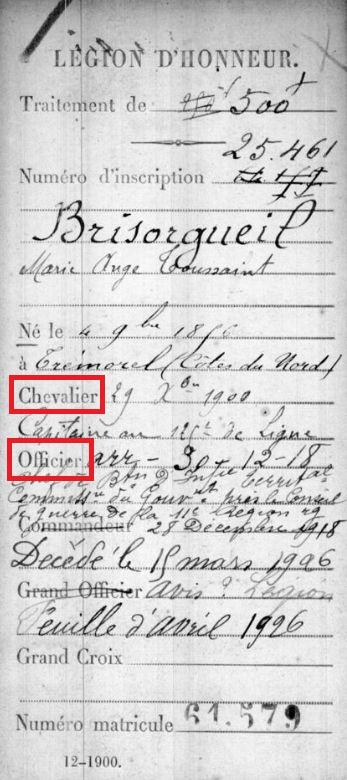 LÉGION D'HONNEUR.
Traitement de 250f 500f
25.461
Numéro d'inscription
Brisorgueil
Marie Ange Toussaint
Né le 4 9bre 1856
à Trémorel (Côtes du Nord)
Chevalier 29 Xbre 1900
Capitaine au 121e de Ligne
Officier arr - 30 - 12 - 18
Chef de Bon d'Infie Territale
Commissre du Gouvt près le Conseil
de guerre de la 11e Région rg
Commandeur 28 Décembre 1918
Décédé le 15 mars 1926
Grand Officier Avis Légion
Feuille d'avril 1926
Grand Croix
Numéro matricule 61.579
12-1900.